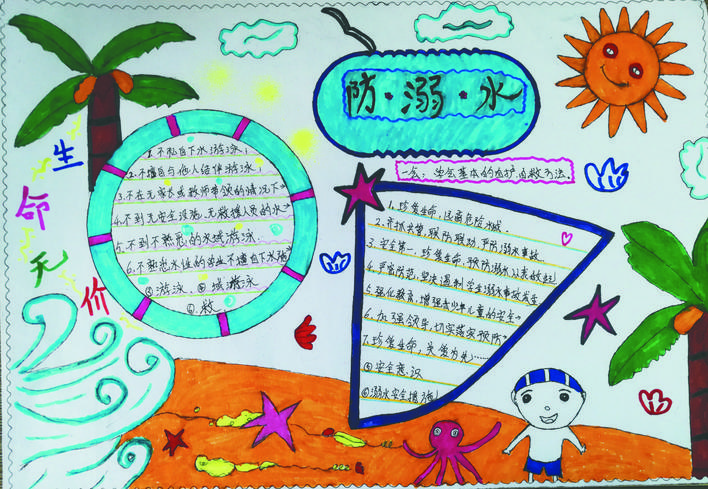 防·溺·水
生命无价
一会：学会基本的自护自救方法。
1.不私自下水游泳；
2.不擅自与他人结伴游泳；
3.不在无家长或教师带领的情况下
4.不到无安全设施、无救援人员的水
5.不到不熟悉的水域游泳
6.不熟悉水性的学生不擅自下水
游泳、域游泳
救
1.珍爱生命，远离危险水域.
2.齐抓共管，联防联动，严防溺水事故
3.安全第一，珍爱生命，预防溺水从我做起
4.严密防范，坚决遏制学生溺水事故发生
5.强化教育，增强青少年儿童的安全
6.加强领导，切实落实预防
7.珍爱生命，关爱为先……
⑤安全意识
⑥溺水安全措施！